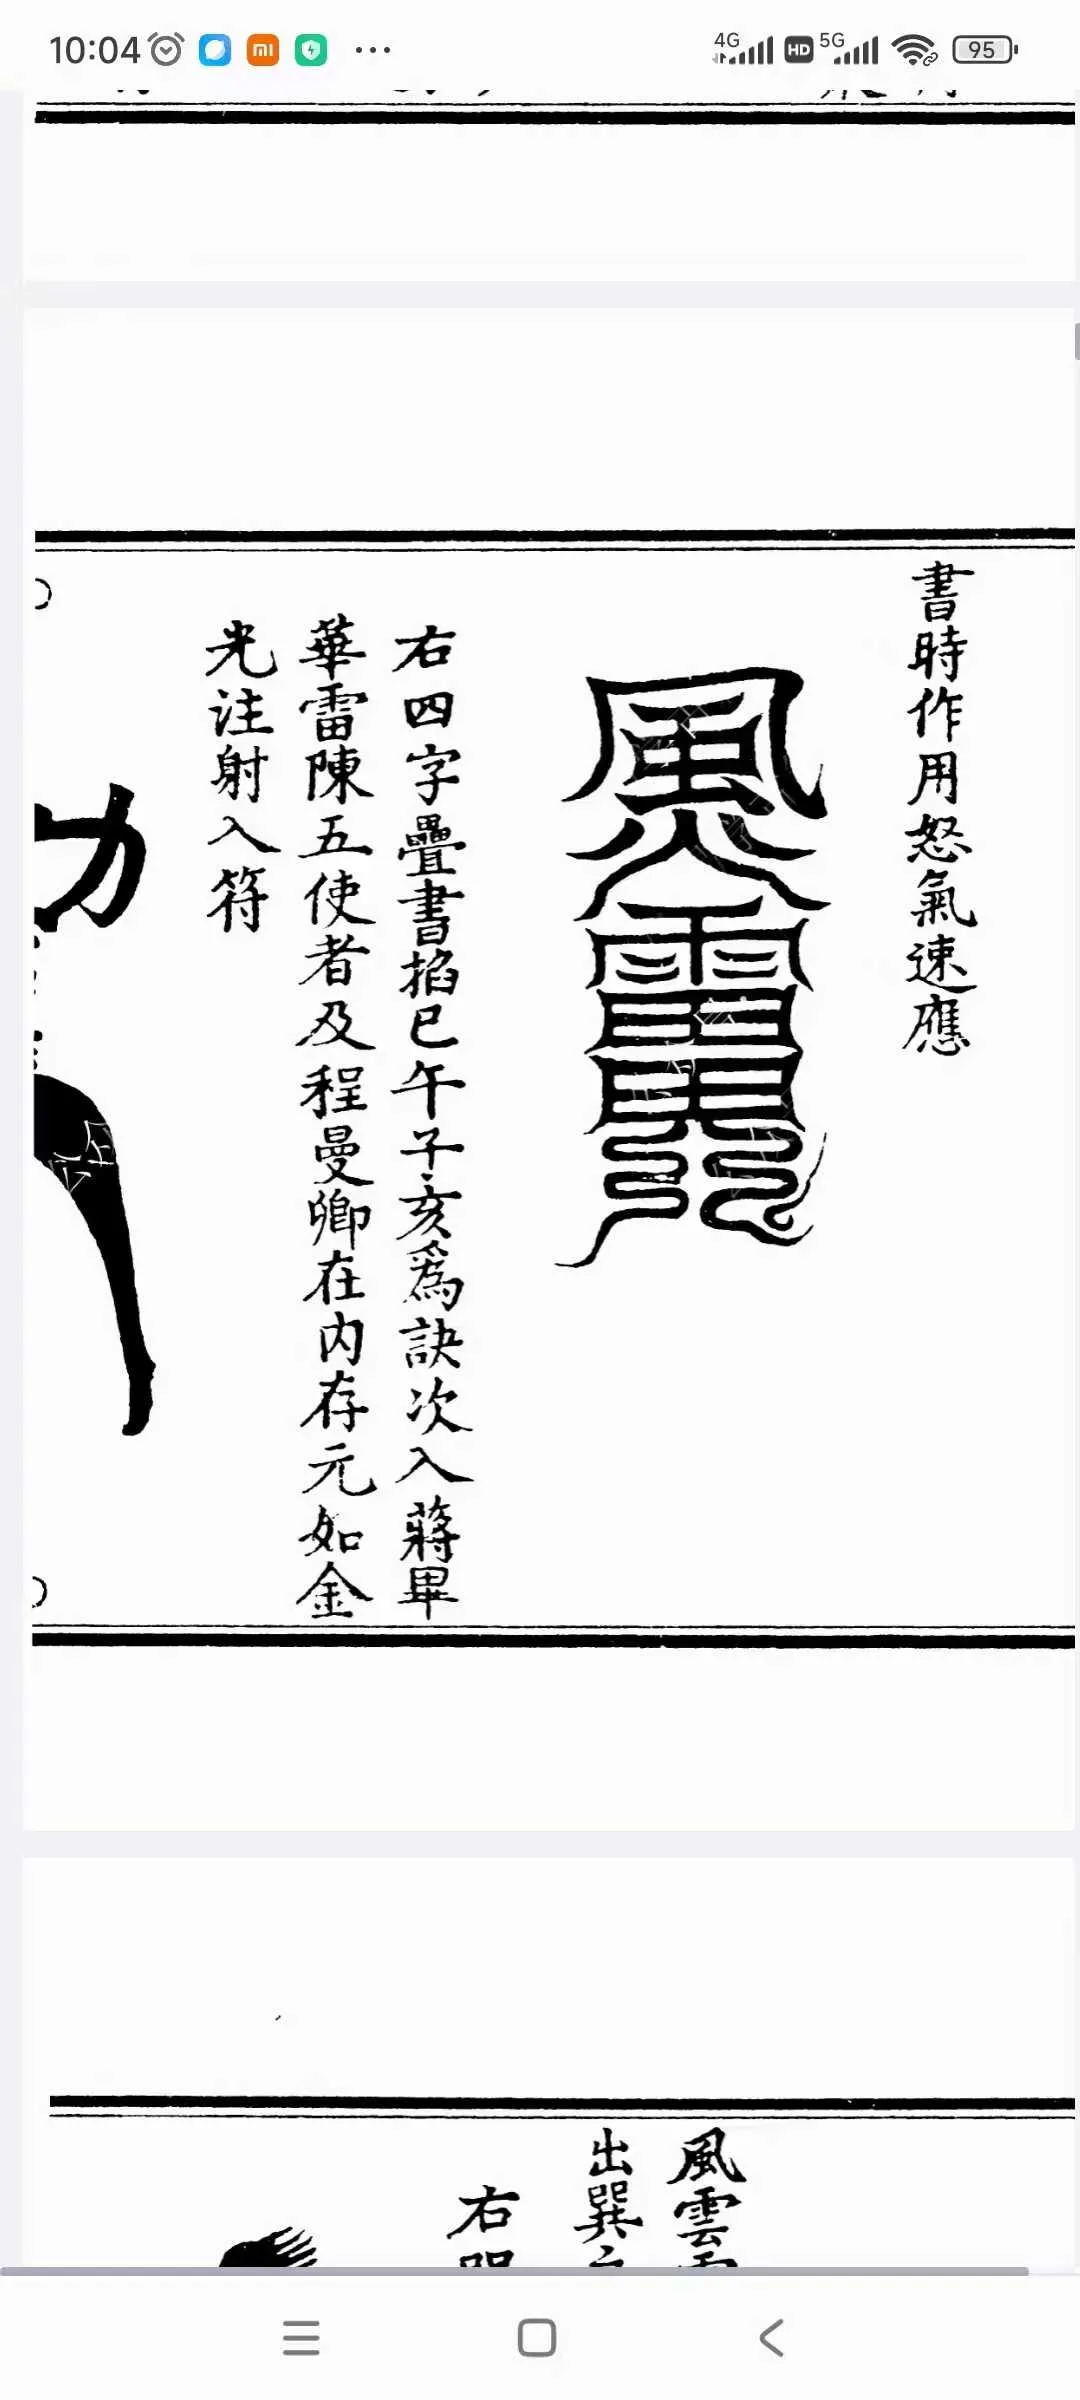 10:04
4G HD 5G 95
書時作用怒氣速應
右四字疊書掐巳午子亥爲訣次入蔣畢
華雷陳五使者及程曼卿在内存元如金
光注射入符
風雲
出巽之
右